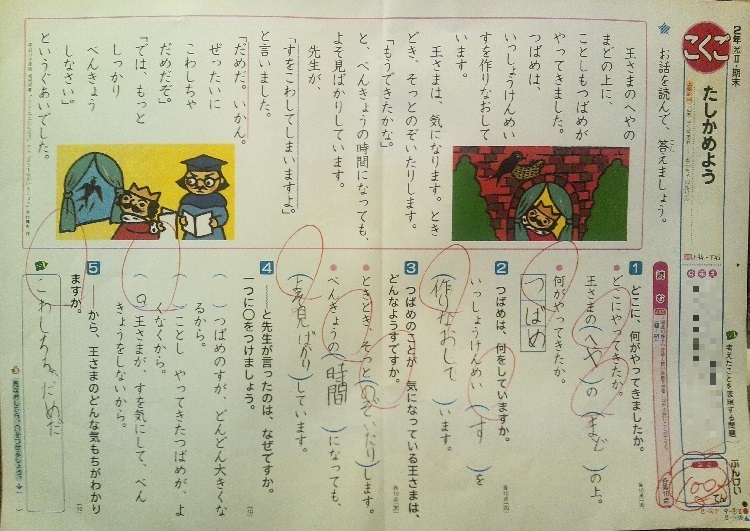 2年 II・期末
こくご
たしかめよう
お話を読んで、答えましょう。
王さまのへやの
まどの上に、
ことしもつばめが
やってきました。
つばめは、
いっしょうけんめい
すを作りなおして
います。
王さまは、気になります。とき
どき、そっとのぞいたりします。
「もうできたかな。」
と、べんきょうの時間になっても、
よそ見ばかりしています。
先生が、
「すをこわしてしまいますよ」。
と言いました。
「だめだ。いかん。
ぜったいに
こわしちゃ
だめだぞ。」
「では、もっと
しっかり
べんきょう
しなさい。」
というぐあいでした。
なまえ
考えたことを表現する問題
ぶんけい
てん
読む
1 どこに、何がやってきましたか。
どこにやってきたか。
王さまの(へや)の(まど)の上。
何がやってきたか。
つばめ
2 つばめは、何をしていますか。
いっしょうけんめい(す)を
(作りなおして)います。
3 つばめのことが、気になっている王さまは、
どんなようすですか。
ときどき、そっと(のぞいたり)します。
べんきょうの(時間)になっても、
(よそ見ばかり)しています。
4 ――と先生が言ったのは、なぜですか。
一つに○をつけましょう。
( )つばめのすが、どんどん大きくな
るから。
( )ことし やってきたつばめが、よ
くなくから。
(○)王さまが、すを気にして、べん
きょうをしないから。
5 ――から、王さまのどんな気もちがわかり
ますか。
こわしちゃだめだ